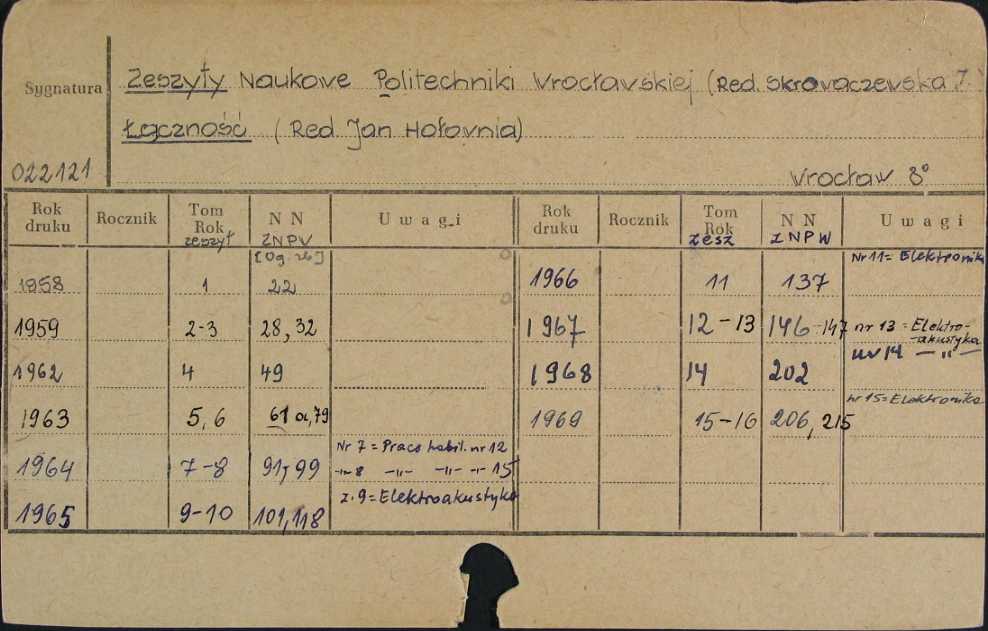 Sygnatura
Zeszyty Naukowe Politechniki Wrocławskiej (Red. Skrowaczewska J.
Łączność (Red Jan Hołownia)
022121
Wrocław 8°
Rok druku Rocznik Tom Rok zeszyt N N ZNPW [Og. zb] Uwagi Rok druku Rocznik Tom Rok zesz N N ZNPW Uwagi
1958 1 22 1966 11 137 Nr 11= Elektronika
1959 2-3 28, 32 1967 12-13 146-147 nr 13 = Elektro-
-akustyka
1962 4 49 1968 14 202 nr 14 — " —
1963 5, 6 61 79 1969 15-16 206, 215 nr 15= Elektronika
1964 7-8 91, 99 Nr 7 = Prace habil. nr 12
-"- 8 -"- -"- -"- 15
1965 9-10 101, 118 z. 9= Elektroakustyka